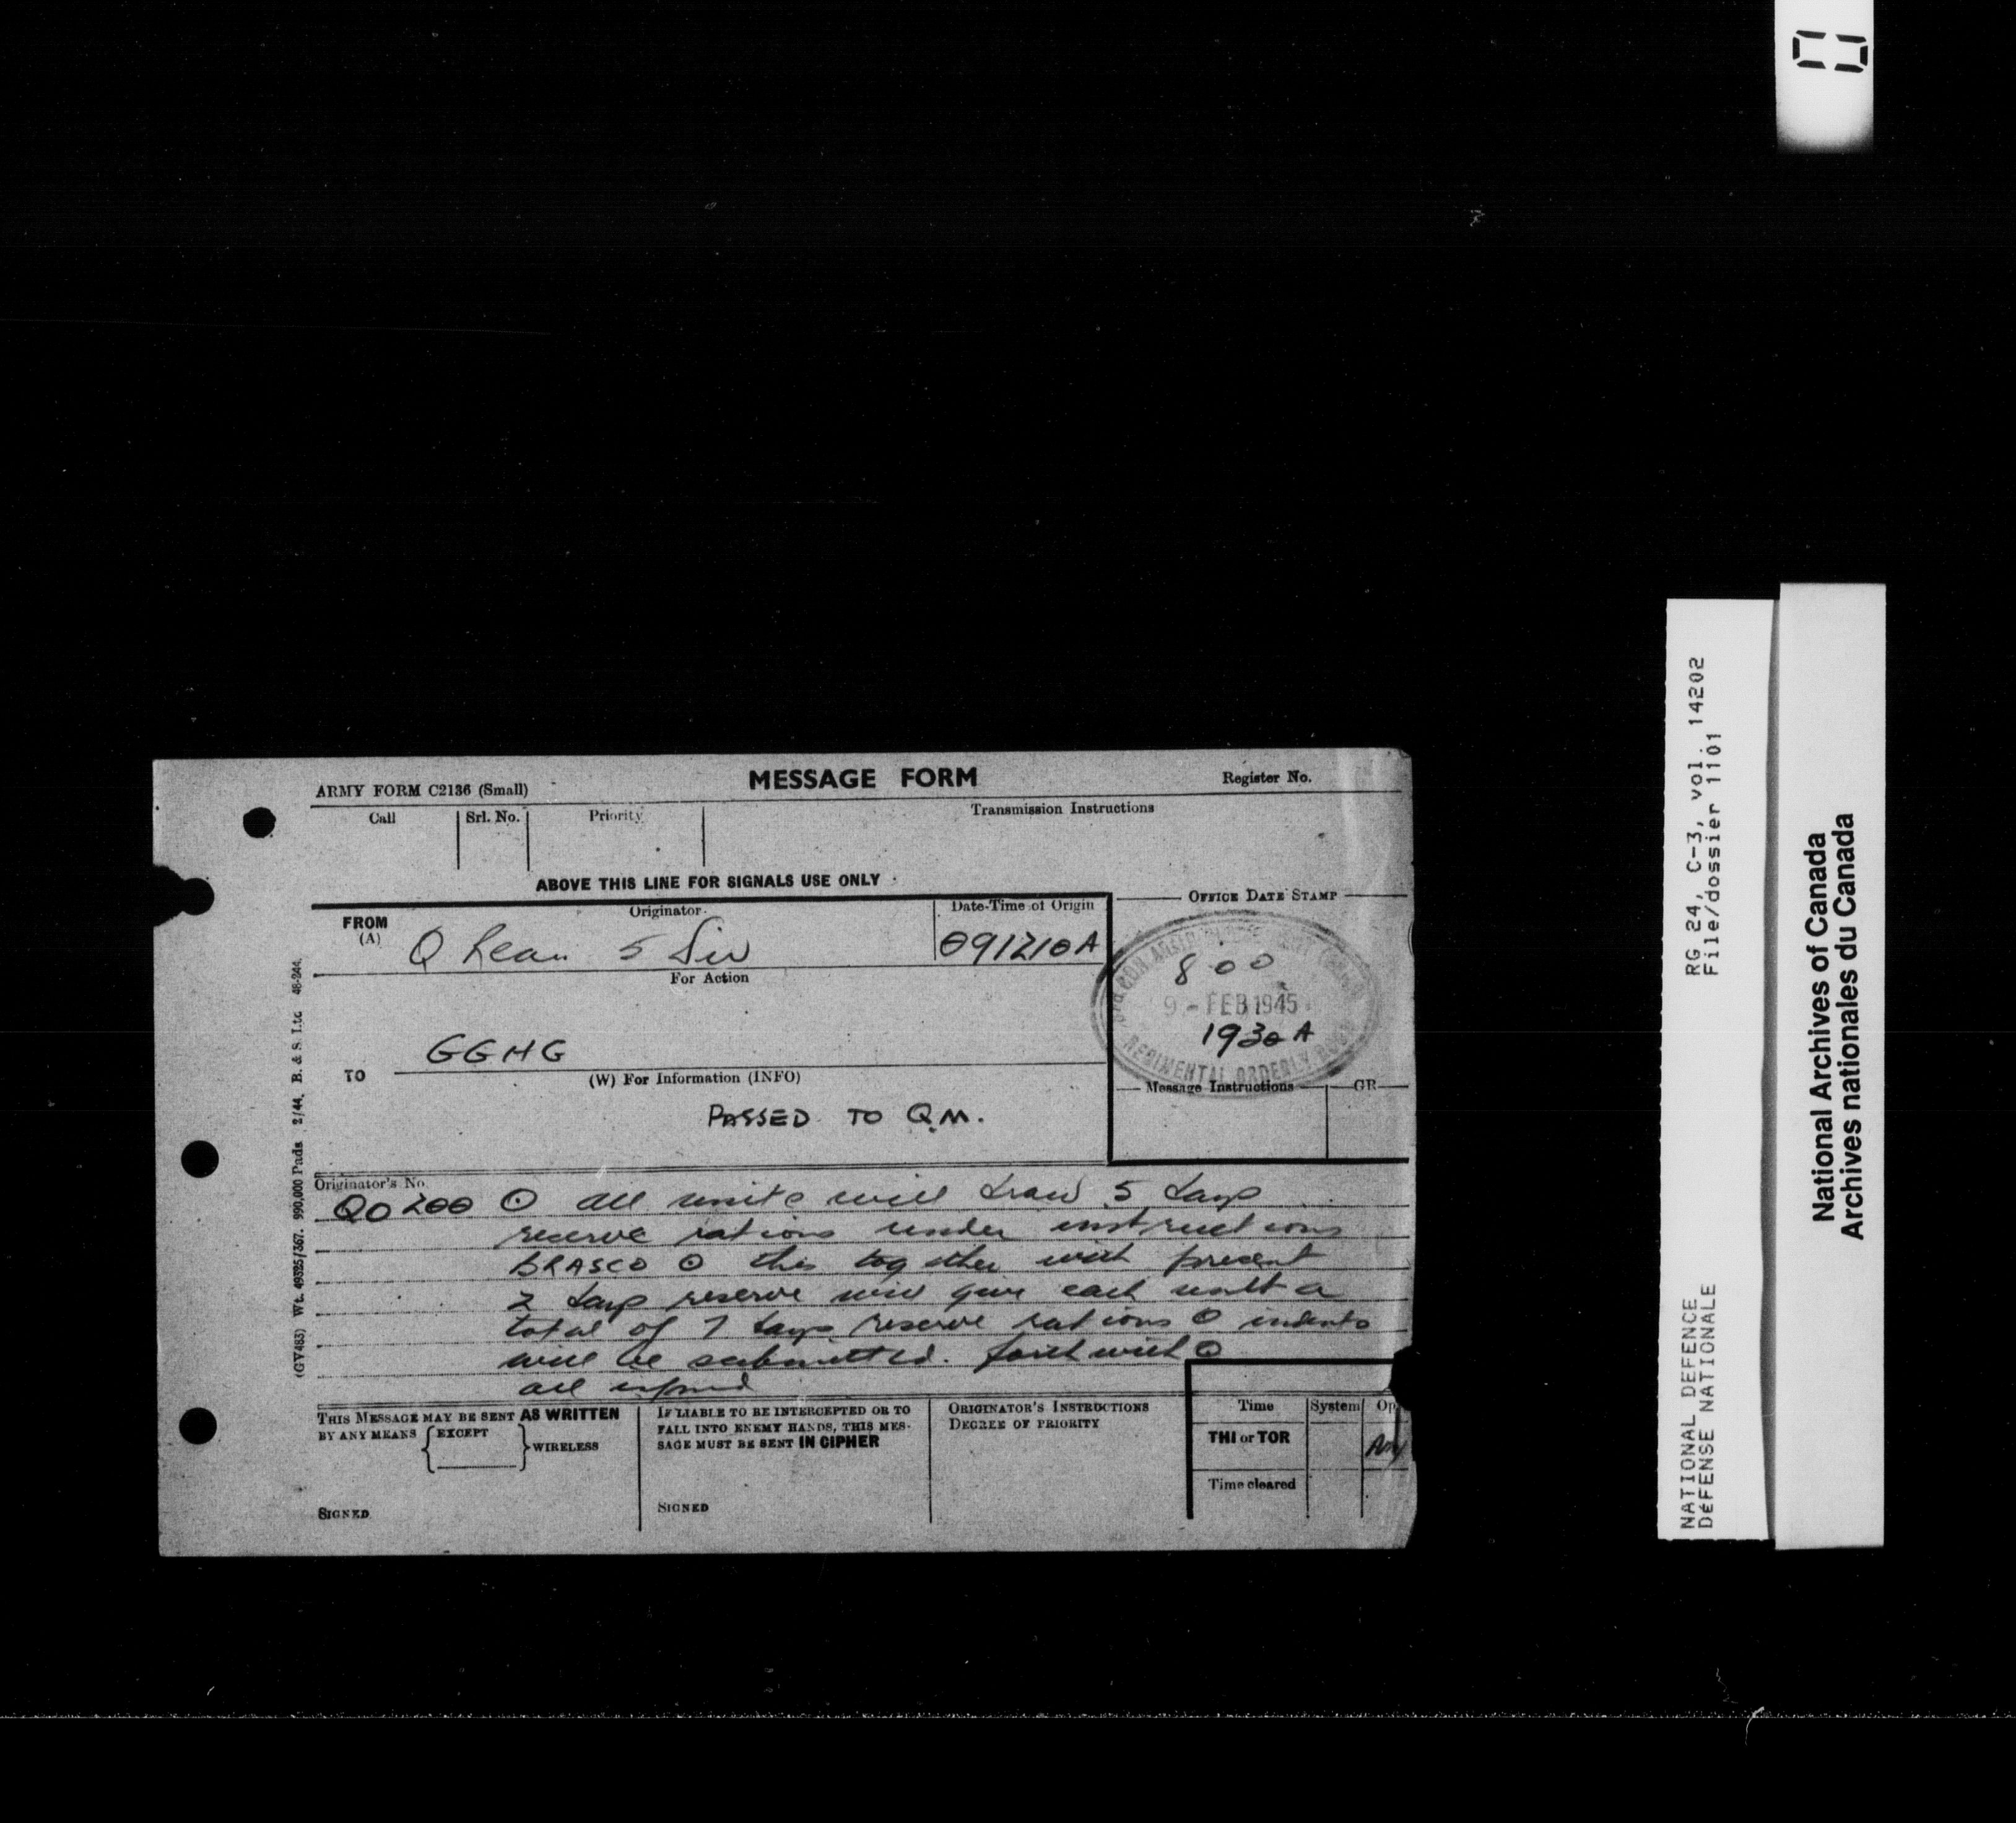 ARMY FORM C2136 (Small)
MESSAGE FORM
Register No.
Call
Srl. No.
Priority
Transmission Instructions
ABOVE THIS LINE FOR SIGNALS USE ONLY
FROM
(A)
Originator
Date-Time of Origin
OFFICE DATE STAMP
Q Rear 5 Div
091210A
For Action
800
9 - FEB 1945
1930 A
REGIMENTAL ORDERLY ROOM
GGHG
TO
(W) For Information (INFO)
Message Instructions
GR
PASSED TO Q.M.
Originator's No.
QO 200 ⊙ all units will draw 5 days
reserve rations under instructions
BRASCO ⊙ this together with present
2 days reserve will give each unit a
total of 7 days reserve rations ⊙ indents
will be submitted. forthwith ⊙
all infmd
THIS MESSAGE MAY BE SENT AS WRITTEN
BY ANY MEANS { EXCEPT } WIRELESS
SIGNED
IF LIABLE TO BE INTERCEPTED OR TO
FALL INTO ENEMY HANDS, THIS MES-
SAGE MUST BE SENT IN CIPHER
SIGNED
ORIGINATOR'S INSTRUCTIONS
DEGREE OF PRIORITY
Time
System
Op
THI or TOR
Time cleared
(GV483) Wt. 49325/367. 990,000 Pads 2/44. B. & S. Ltd 48-244.
NATIONAL DEFENCE RG 24, C-3, vol. 14202
DéFENSE NATIONALE File/dossier 1101
National Archives of Canada
Archives nationales du Canada